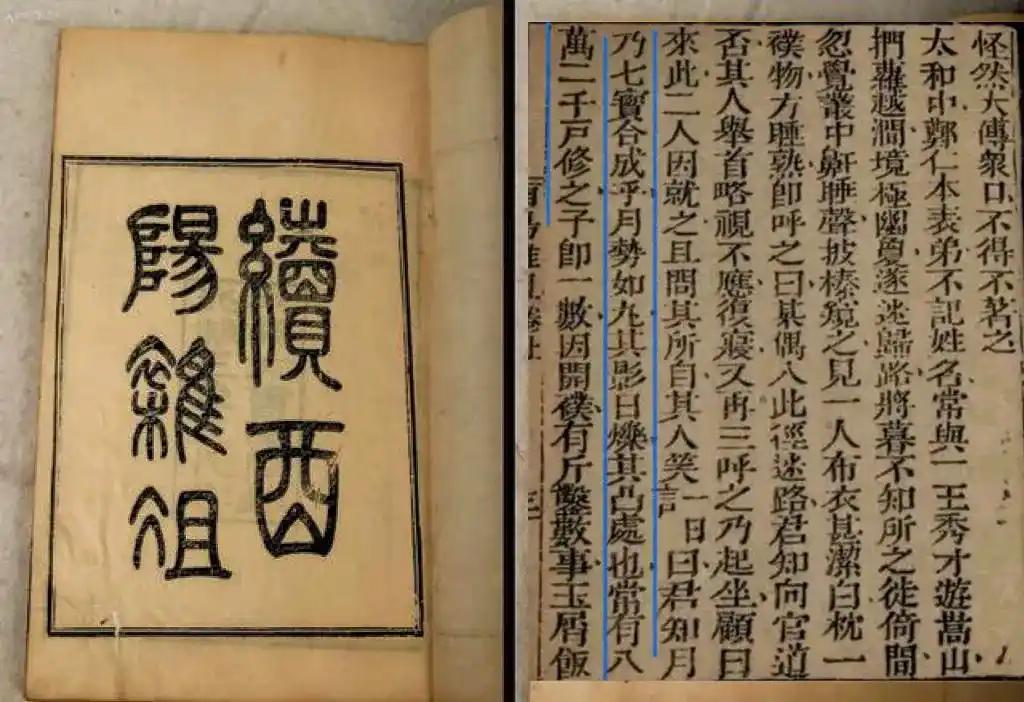 續酉
陽雜俎
怪然大傳衆口不得不著之
太和中鄭仁本表弟不記姓名常與一王秀才遊嵩山
捫蘿越澗境極幽夐遂迷歸路將暮不知所之徙倚間
忽覺叢中鼾睡聲披榛窺之見一人布衣甚潔白枕一
襆物方睡熟即呼之曰某偶入此徑迷路君知向官道
否其人舉首略視不應復寢又再三呼之乃起坐顧曰
來此二人因就之且問其所自其人笑一曰言曰君知月
乃七寶合成乎月勢如丸其影日爍其凸處也常有八
萬二千戸修之子即一數因開襆有斤鑿數事玉屑飯